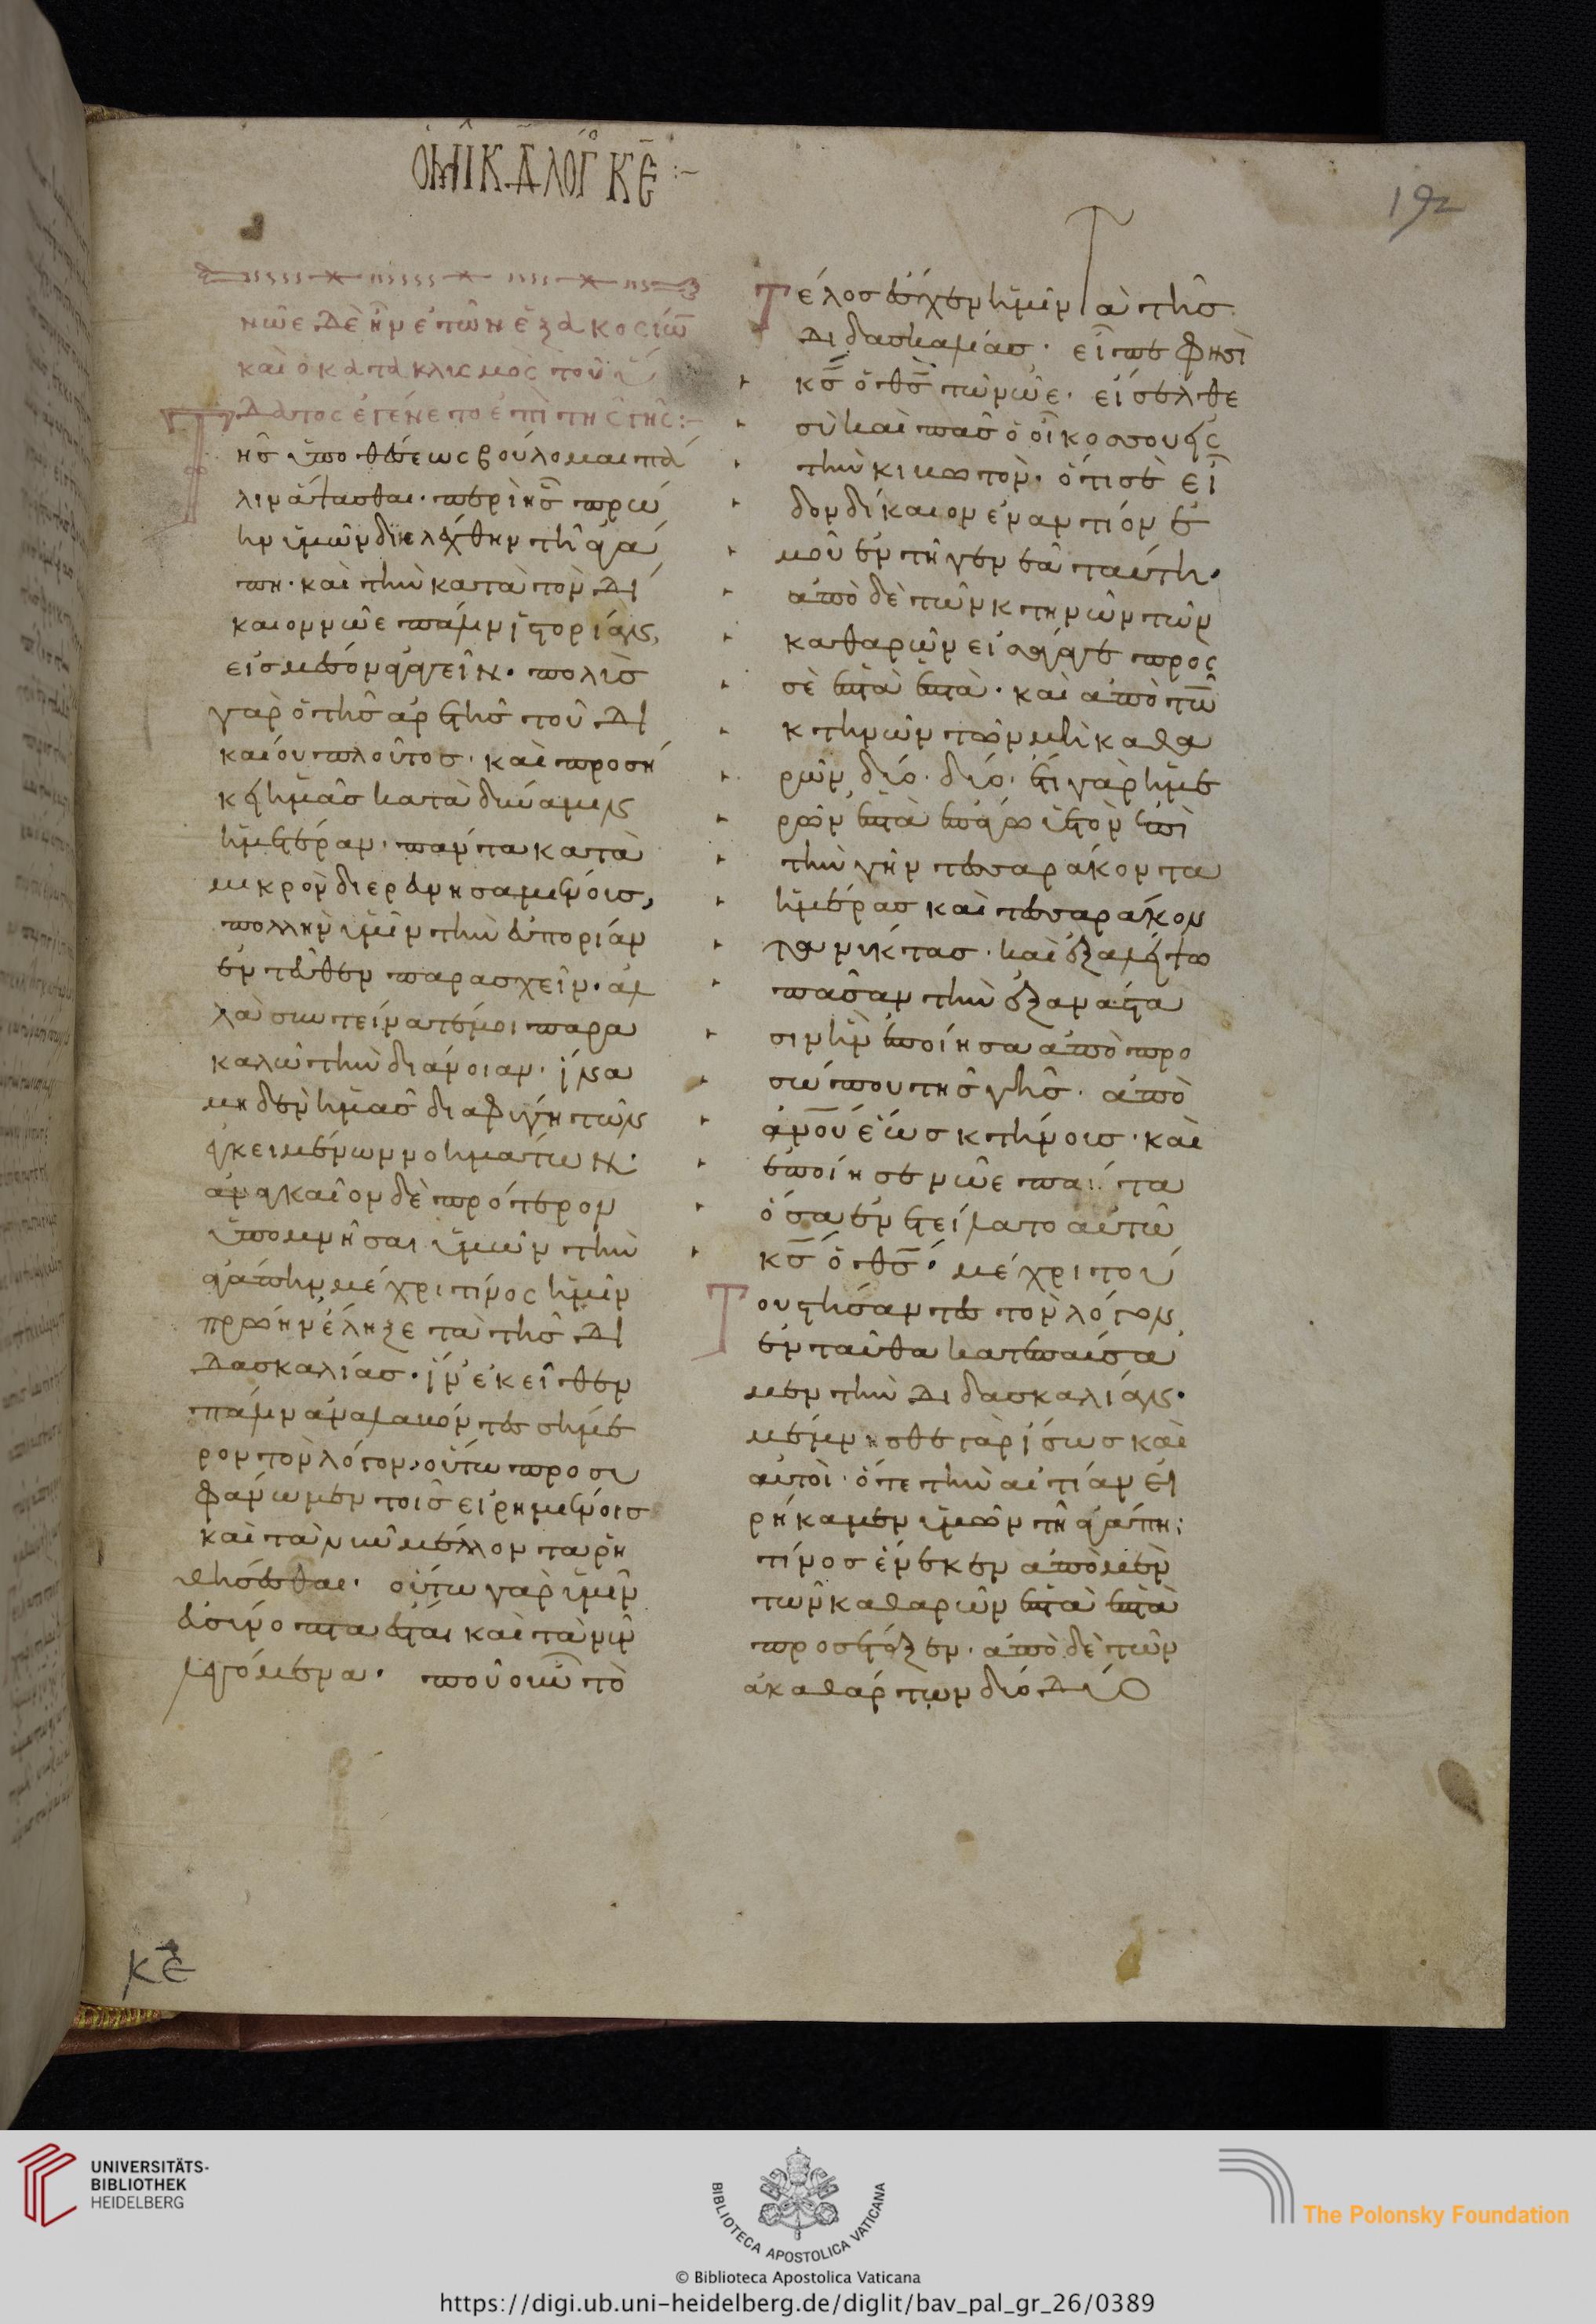 ὉΜΙΛ ΛΟΓ ΚΕ :~
192
νῶε δὲ ἦν ἐτῶν ἑξακοσίων
καὶ ὁ κατακλυσμὸς τοῦ ὕ
δατος ἐγένετο ἐπὶ τῆς γῆς :~
Τῆς ὑποθέσεως βούλομαι πά
λιν ἅψασθαι. περὶ ἧς πρώ
ην ὑμῶν διελέχθην τῇ ἀγά
πῃ. καὶ τὴν κατὰ τὸν δί
καιον νῶε πάλιν ἱστορίαν,
εἰς μέσον ἀγαγεῖν. πολὺς
γὰρ ὁ τῆς ἀρετῆς τοῦ δι
καίου πλοῦτος. καὶ προσή
κει ἡμᾶς κατὰ δύναμιν
ἡμετέραν. πάντα κατὰ
μικρὸν διερευνησαμένους,
πολλὴν ὑμῖν τὴν εὐπορίαν
ἐντεῦθεν παρασχεῖν. ἀλ
λὰ συντείνατέ μοι παρα
καλῶ τὴν διάνοιαν. ἵνα
μηδὲν ἡμᾶς διαφύγῃ τῶν
ἐγκειμένων νοημάτων.
ἀναγκαῖον δὲ πρότερον
ὑπομνῆσαι ὑμῶν τὴν
ἀγάπην, μέχρι τίνος ἡμῖν
πρώην ἔληξε τὰ τῆς δι
δασκαλίας. ἵν' ἐκεῖθεν
πάλιν ἀναλαβόντες σήμε
ρον τὸν λόγον, οὕτω προσυ
φάνωμεν τοῖς εἰρημένοις
καὶ τὰ νῦν μέλλοντα ῥη
θήσεσθαι. οὕτω γὰρ ὑμῖν
εὐσύνοπτα ἔσται καὶ τὰ νῦν
λεγόμενα. ποῦ οὖν τὸ
Τέλος ἔσχεν ἡμῖν τὰ τῆς
διδασκαλίας. εἶπε φησὶ
κς ὁ θς τῷ νῶε. εἴσελθε
σὺ καὶ πᾶς ὁ οἶκος σου εἰς
τὴν κιβωτόν. ὅτι σὲ εἶ
δον δίκαιον ἐναντίον ἐ
μοῦ ἐν τῇ γενεᾷ ταύτῃ.
ἀπὸ δὲ τῶν κτηνῶν τῶν
καθαρῶν εἰσάγαγε πρὸς
σὲ ἑπτὰ ἑπτὰ. καὶ ἀπὸ τῶν
κτηνῶν τῶν μὴ καθα
ρῶν, δύο. δύο. ἔτι γὰρ ἡμε
ρῶν ἑπτὰ ἐπάγω ὑετὸν ἐπὶ
τὴν γῆν τεσσαράκοντα
ἡμέρας καὶ τεσσαράκον
τα νύκτας. καὶ ἐξαλείψω
πᾶσαν τὴν ἐξανάστα
σιν ἣν ἐποίησα ἀπὸ προ
σώπου τῆς γῆς. ἀπὸ
ἀνου ἕως κτήνους. καὶ
ἐποίησε νῶε πάντα
ὅσα ἐνετείλατο αὐτῷ
κς ὁ θς. μέχρι τού
Του στήσαντες τὸν λόγον,
ἐνταῦθα κατεπαύσα
μεν τὴν διδασκαλίαν.
μέμνησθε γὰρ ἴσως καὶ
αὐτοὶ. ὅτε τὴν αἰτίαν εἰ
ρήκαμεν ὑμῶν τῇ ἀγάπῃ;
τίνος ἕνεκεν ἀπὸ μὲν
τῶν καθαρῶν ἑπτὰ ἑπτὰ
προσέταξεν. ἀπὸ δὲ τῶν
ἀκαθάρτων δύο δύο
ΚΕ
UNIVERSITÄTS-
BIBLIOTHEK
HEIDELBERG
BIBLIOTECA APOSTOLICA VATICANA
The Polonsky Foundation
© Biblioteca Apostolica Vaticana
https://digi.ub.uni-heidelberg.de/diglit/bav_pal_gr_26/0389